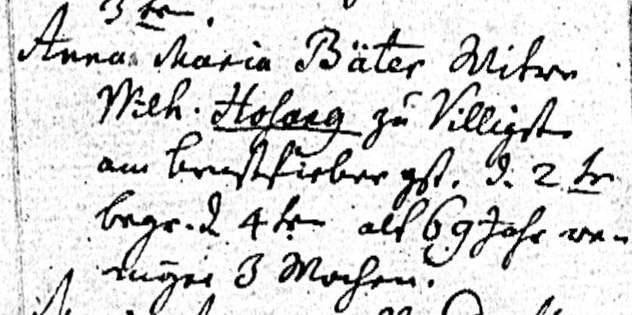 3 ten.
Anna Maria Bäter Witwe
Wilh. Hosang zu Villigst
am brustfieber gst. d. 2 te
begr. d 4 ten alt 69 Jahr we-
niger 3 Wochen.